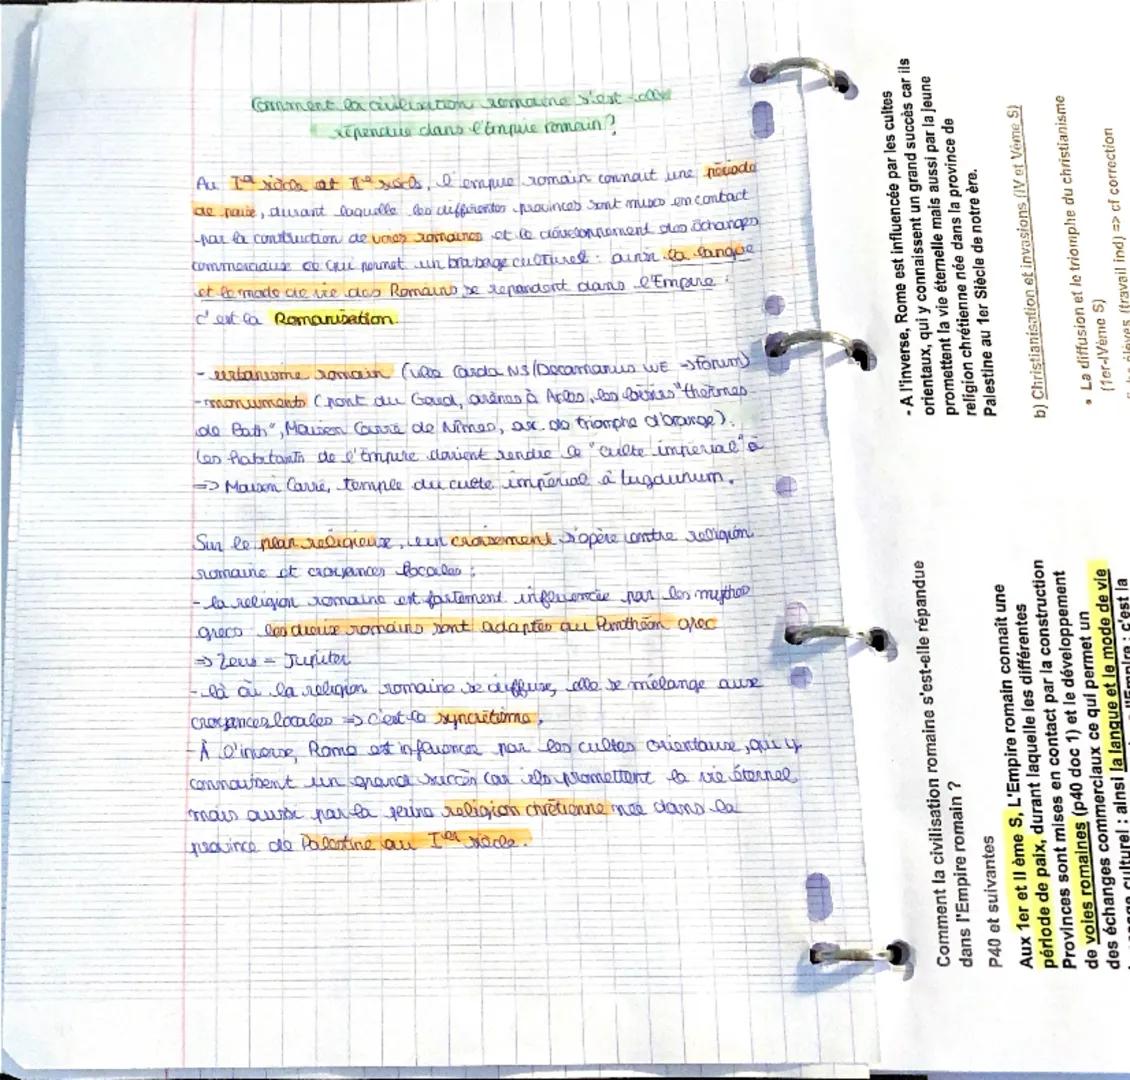 Comment la civilisation romaine s'est-elle
répendue dans l'Empire romain?
Au Iᵉʳ siècle et IIᵉ siècle, l'empire romain connait une période
de paix, durant laquelle les différentes provinces sont mises en contact
par la construction de voies romaines et le développement des échanges
commerciaux ce qui permet un brassage culturel : ainsi la langue
et le mode de vie des Romains se repandent dans l'Empire.
c'est la Romanisation.
- urbanisme romain (villes Cardo NS/Decamanus WE → forum)
- monuments (pont du Gard, arènes à Arles, les "thermes
de Bath", Maison Carré de Nîmes, arc de triomphe d'orange).
Les habitants de l'Empire doivent rendre le "culte impérial" à
=> Maison Carré, temple du culte impérial à Lugdunum.
Sur le plan religieux, un croisement s'opère entre religion
romaine et croyances locales :
- la religion romaine est fortement influencée par les mythes
grecs les dieux romains sont adaptés au Panthéon grec
=> Zeus = Jupiter
- là où la religion romaine se diffuse, elle se mélange aux
croyances locales => c'est le syncrétisme,
- À l'inverse, Rome est influencer par les cultes orientaux, qui y
connaissent un grand succès car ils promettent la vie éternel
mais aussi par la jeune religion chrétienne née dans la
province de Palestine au Iᵉʳ siècle.
Comment la civilisation romaine s'est-elle répandue
dans l'Empire romain ?
P40 et suivantes
Aux 1er et II ème S, L'Empire romain connaît une
période de paix, durant laquelle les différentes
Provinces sont mises en contact par la construction
de voies romaines (p40 doc 1) et le développement
des échanges commerciaux ce qui permet un
culturel : ainsi la langue et le mode de vie
l'Empire : c'est la
- A l'inverse, Rome est influencée par les cultes
orientaux, qui y connaissent un grand succès car ils
promettent la vie éternelle mais aussi par la jeune
religion chrétienne née dans la province de
Palestine au 1er Siècle de notre ère.
b) Christianisation et invasions (IV et Vème S)
• La diffusion et le triomphe du christianisme
(1er-IVème S)
élèves (travail ind) => cf correction